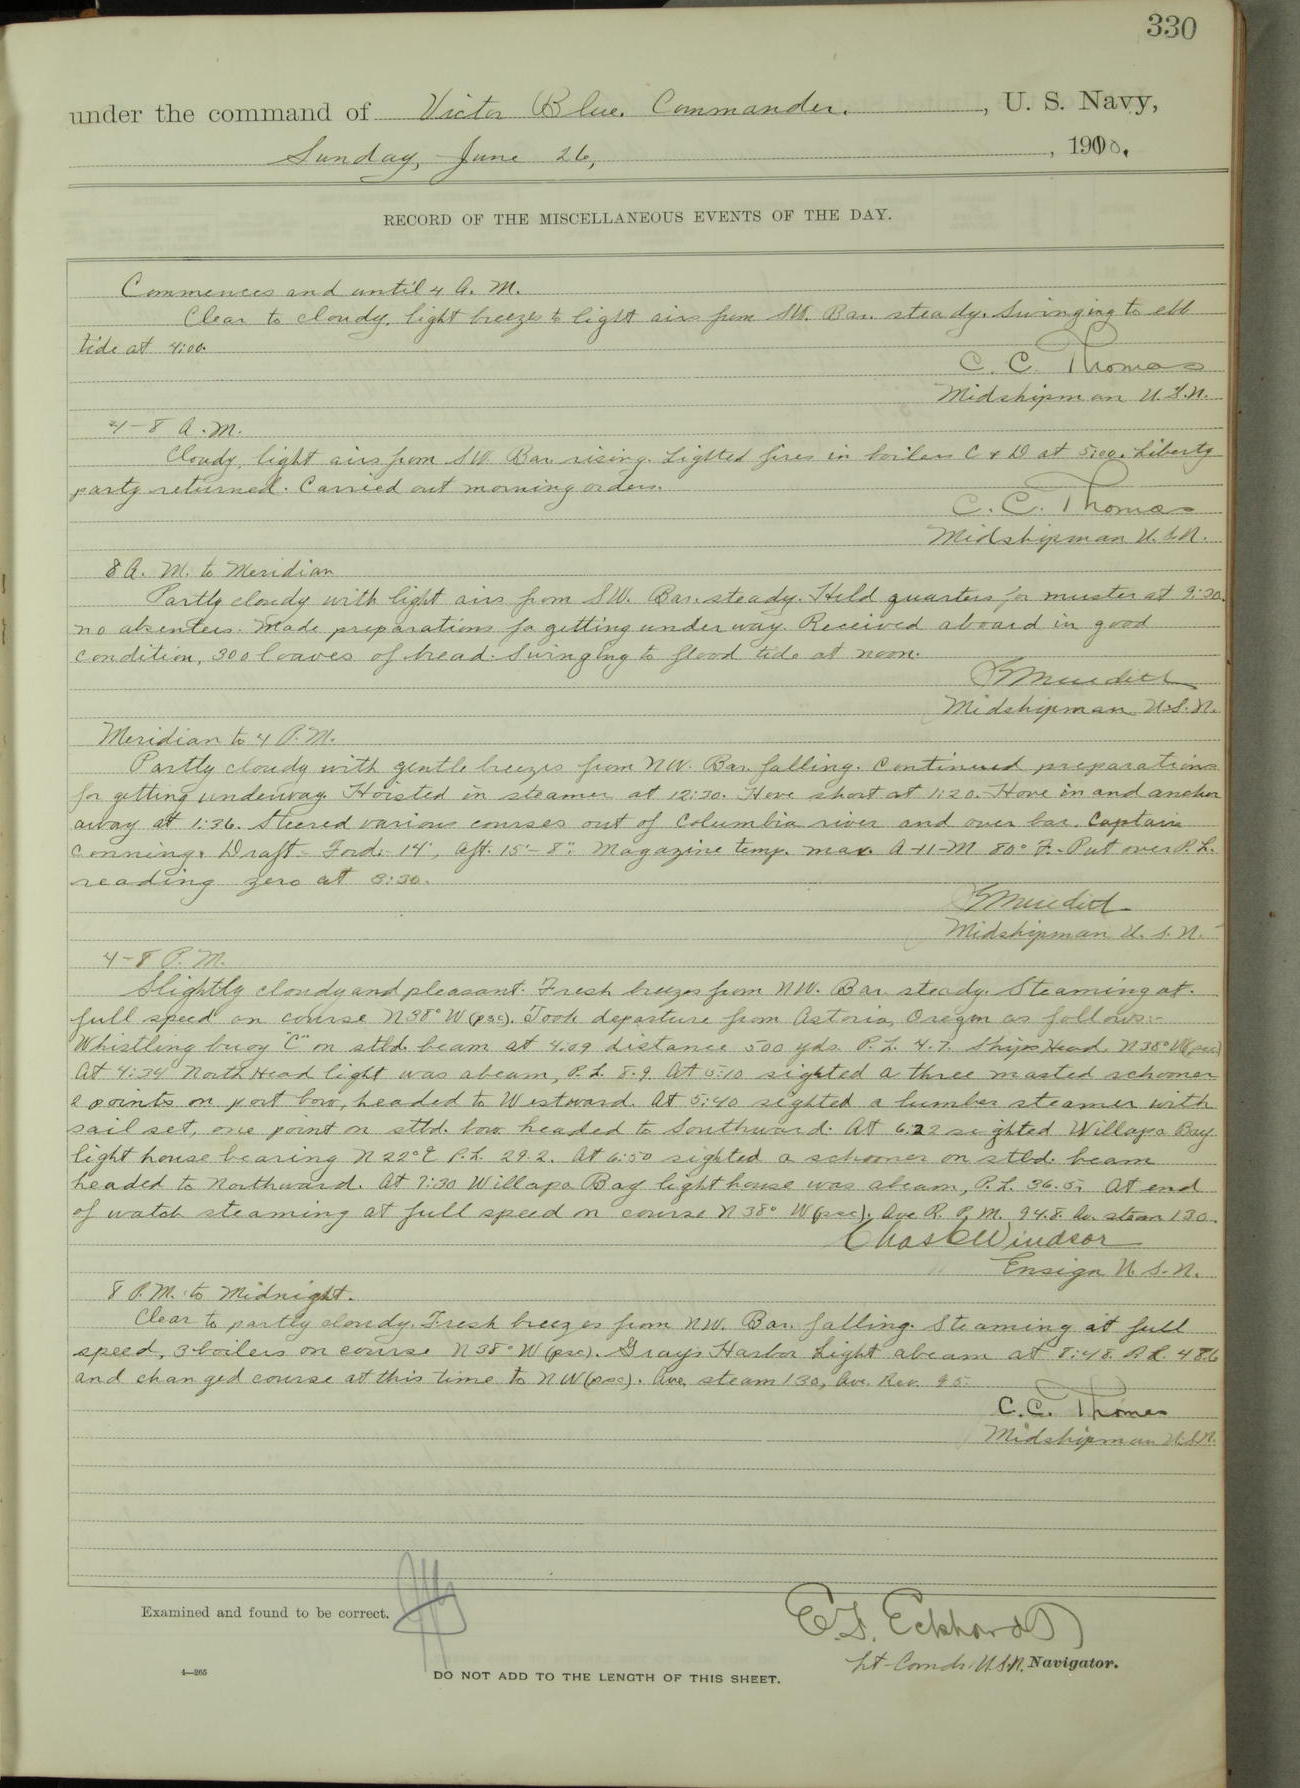 330
under the command of Victor Blue, Commander, , U. S. Navy,
Sunday, June 26, , 1910.
RECORD OF THE MISCELLANEOUS EVENTS OF THE DAY.
Commences and until 4 A. M.
Clear to cloudy, light breezes to light airs from SW. Bar. steady. Swinging to ebb
tide at 4:00.
C. C. Thomas
Midshipman U.S.N.
4-8 A.M.
Cloudy, light airs from SW. Bar. rising. Lighted fires in boilers C & D at 5:00. Liberty
party returned. Carried out morning orders.
C. C. Thomas
Midshipman U.S.N.
8 A. M. to Meridian
Partly cloudy with light airs from SW. Bar. steady. Held quarters for muster at 9:30.
no absentees. Made preparations for getting under way. Received aboard in good
condition, 300 loaves of bread. Swinging to flood tide at noon.
Meredith
Midshipman U.S.N.
Meridian to 4 P.M.
Partly cloudy with gentle breezes from NW. Bar. falling. Continued preparations
for getting underway. Hoisted in steamer at 12:30. Hove short at 1:20. Hove in and anchor
away at 1:36. Steered various courses out of Columbia river and over bar. Captain
conning. Draft- Ford. 14', Aft. 15'-8". Magazine temp. max. A-11-M 80° F. Put over P.L.
reading zero at 3:30.
Meredith
Midshipman U. S. N.
4-8 P.M.
Slightly cloudy and pleasant. Fresh breezes from NW. Bar. steady. Steaming at
full speed on course N38°W (psc). Took departure from Astoria, Oregon as follows:-
Whistling buoy "C" on stbd. beam at 4:09 distance 500 yds. P.L. 4.7. Ships Head N38°W(psc)
At 4:34 North Head light was abeam, P.L. 8.9. At 5:10 sighted a three masted schooner
2 points on port bow, headed to Westward. At 5:40 sighted a lumber steamer with
sail set, one point on stbd. bow headed to Southward. At 6:22 sighted Willapa Bay
light house bearing N22°E P.L. 29.2. At 6:50 sighted a schooner on stbd. beam
headed to Northward. At 7:30 Willapa Bay light house was abeam, P.L. 36.5. At end
of watch steaming at full speed on course N38° W (psc). Ave R. P. M. 94.8. Av. steam 130.
Chas Windsor
Ensign U.S.N.
8 P.M. to Midnight.
Clear to partly cloudy. Fresh breezes from NW. Bar. falling. Steaming at full
speed, 3 boilers on course N38°W (psc). Grays Harbor Light abeam at 8:48. P.L. 48.6
and changed course at this time to NW(psc). Ave. steam 130, Ave. Rev. 95.
C.C. Thomas
Midshipman U.S.N.
Examined and found to be correct.
E. F. Eckhardt
Lt-Comdr. U.S.N. Navigator.
4—265
DO NOT ADD TO THE LENGTH OF THIS SHEET.